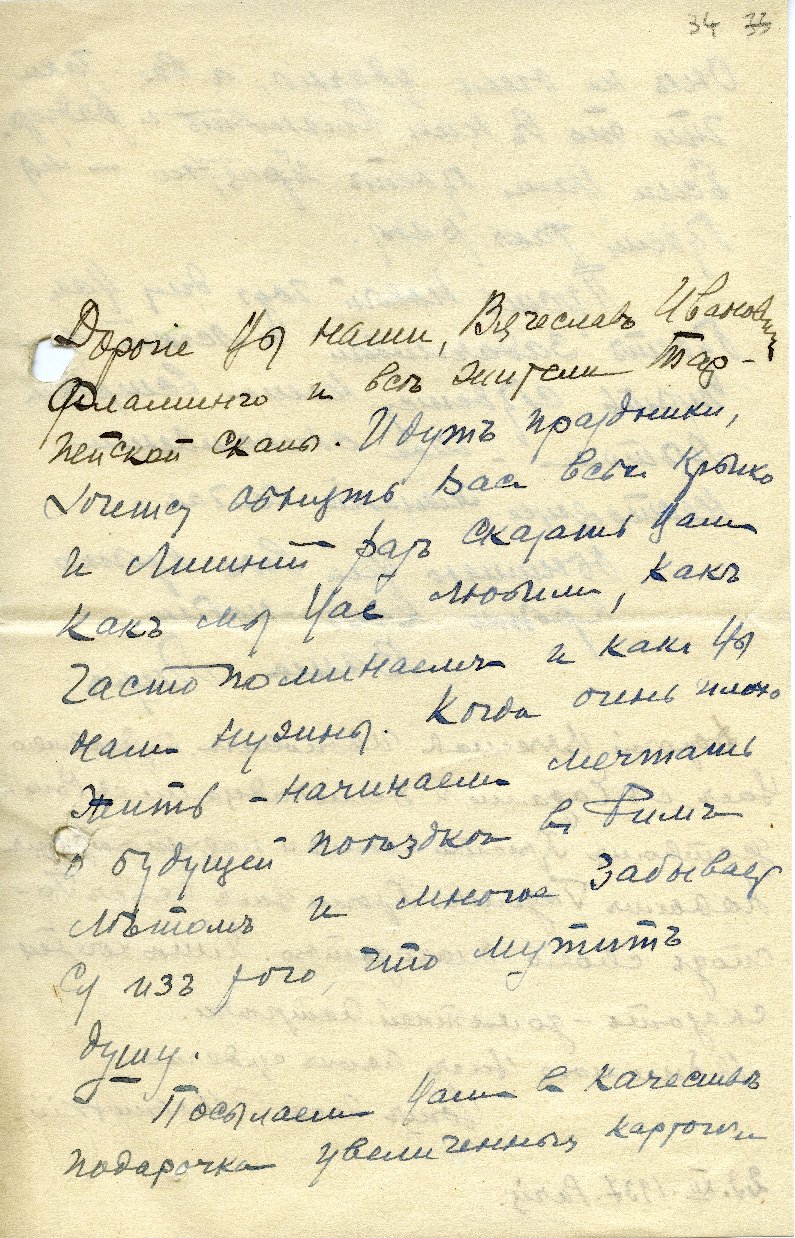 34 33
Дорогiе Вы наши, Вячеславъ Ивановичъ
Фламинго и всѣ жители Тар-
пейской скалы. Идутъ праздники,
хочется обнять Васъ всѣхъ крѣпко
и лишнiй разъ сказать Вамъ
какъ мы Васъ любимъ, какъ
часто поминаемъ и какъ Вы
намъ нужны. Когда очень плохо
жить – начинаемъ мечтать
о будущей поѣздкѣ въ Римъ
лѣтомъ и многое забывает
ся изъ того, что мутитъ
душу.
Посылаемъ Вамъ в качествѣ
подарочка увеличенныя карточки